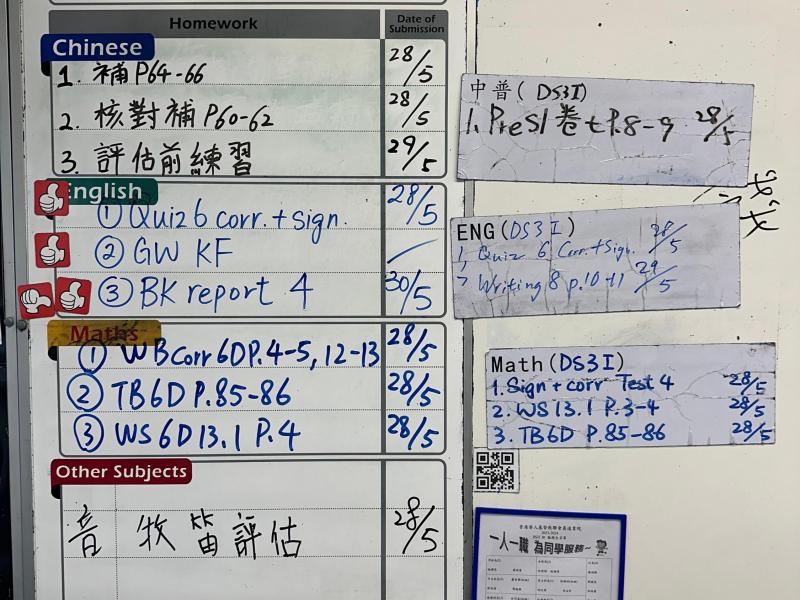 Homework
Date of Submission
Chinese
1. 補P64-66 28/5
2. 核對補P60-62 28/5
3. 評估前練習 29/5
English
① Quiz 6 corr. + sign. 28/5
② GW KF
③ BK report 4 30/5
Maths
① WB Corr 6D P.4-5, 12-13 28/5
② TB 6D P.85-86 28/5
③ WS 6D 13.1 P.4 28/5
Other Subjects
音 牧笛評估 28/5
中普(DS3I)
1. PreS1卷七P.8-9 28/5
ENG(DS3I)
1, Quiz 6 Corr. + Sign. 28/5
2 Writing 8 p.10-11 29/5
Math(DS3I)
1. Sign + corr Test 4 28/5
2. WS 13.1 P.3-4 28/5
3. TB6D P.85-86 28/5
一人一職 為同學服務~